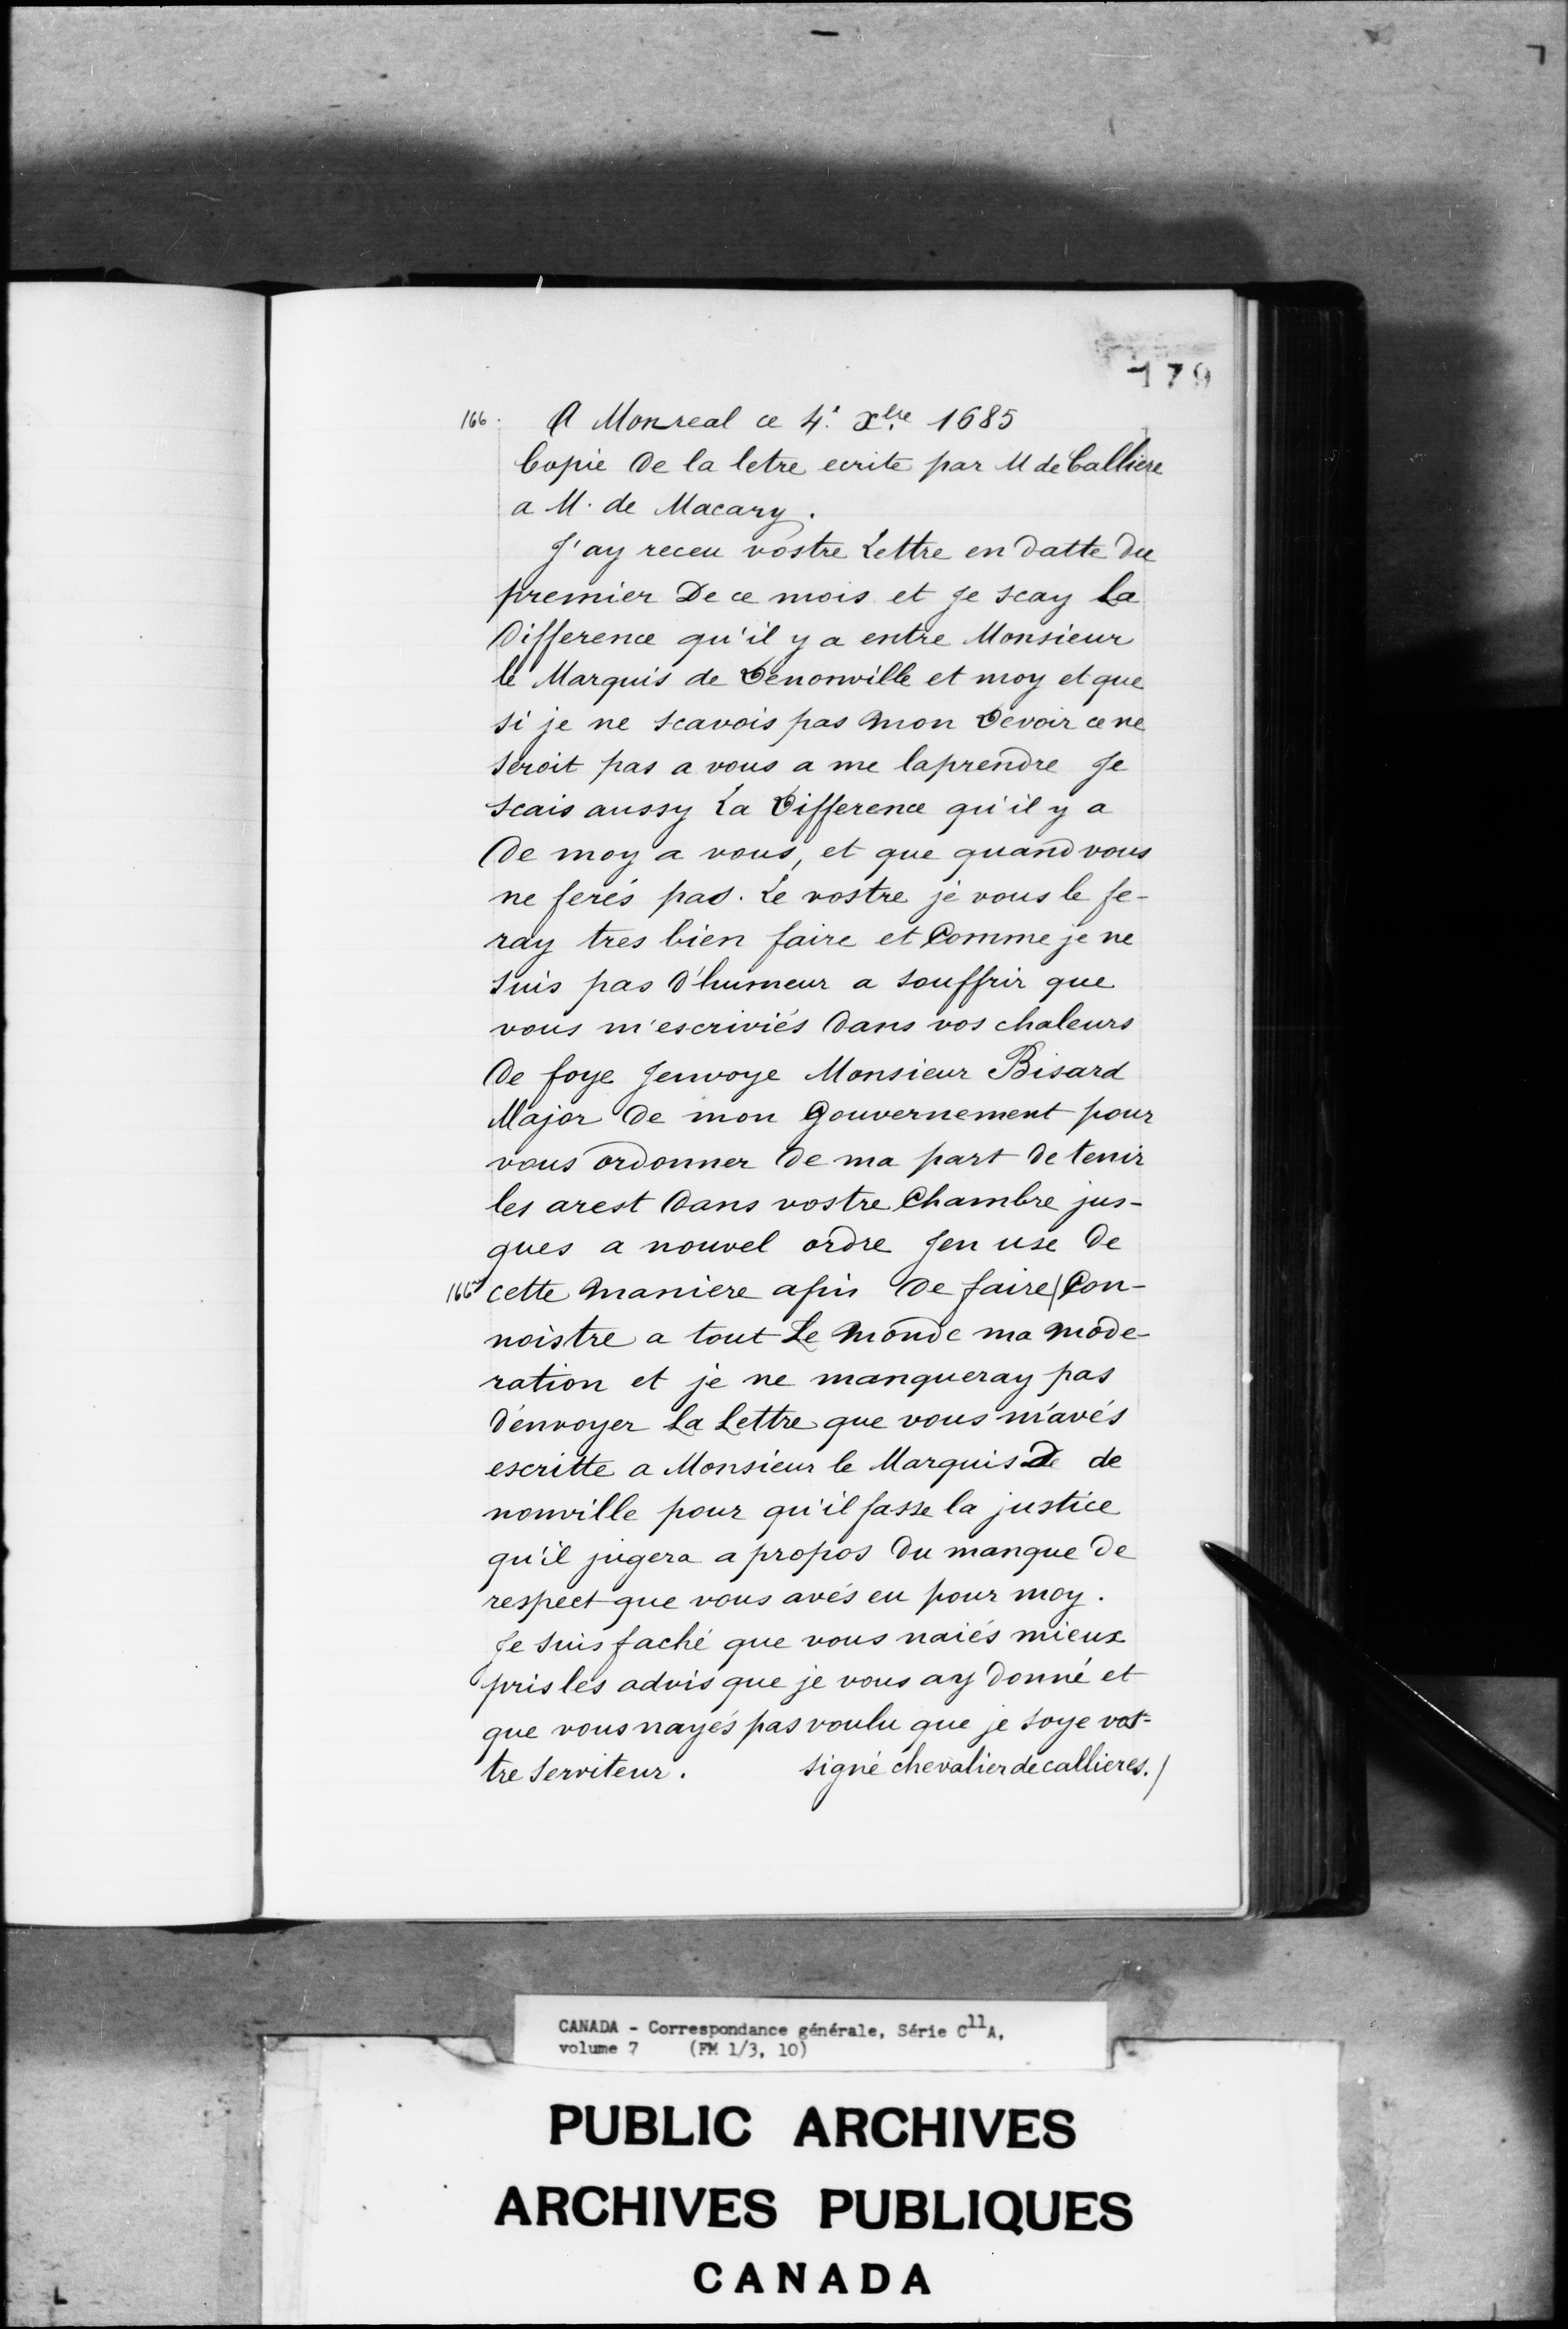 179
166. A Monreal ce 4.e xbre 1685
Copie De la letre ecrite par M de Calliere
a M. de Macary.
J'ay receu vostre Lettre en datte Du
premier De ce mois et Je scay La
Difference qu'il y a entre Monsieur
le Marquis de Denonville et moy et que
si je ne scavois pas Mon Devoir ce ne
seroit pas a vous a me laprendre Je
scais aussy La Difference qu'il y a
De moy a vous, et que quand vous
ne ferés pas. Le vostre je vous le fe-
ray tres bien faire et Comme je ne
suis pas D'humeur a souffrir que
vous m'escriviés Dans vos chaleurs
De foye Jenvoye Monsieur Bisard
Major De mon Gouvernement pour
vous ordonner De ma part De tenir
les arest Dans vostre Chambre jus-
ques a nouvel ordre Jen use De
166vo cette Maniere afin De faire/Con-
noistre a tout Le Monde ma Mode-
ration et je ne manqueray pas
D'envoyer La Lettre que vous m'avés
escritte a Monsieur le Marquis De de
nonville pour qu'il fasse la justice
qu'il jugera a propos Du manque De
respect que vous avés eu pour moy.
Je suis faché que vous naiés mieux
pris les advis que je vous ay Donné et
que vous nayés pas voulu que je soye vos-
tre serviteur. signé chevalier de callieres./
CANADA - Correspondance générale, Série C11A,
volume 7 (FM 1/3, 10)
PUBLIC ARCHIVES
ARCHIVES PUBLIQUES
CANADA